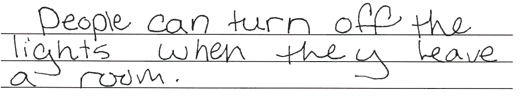 People can turn off the
lights when they leave
a room.